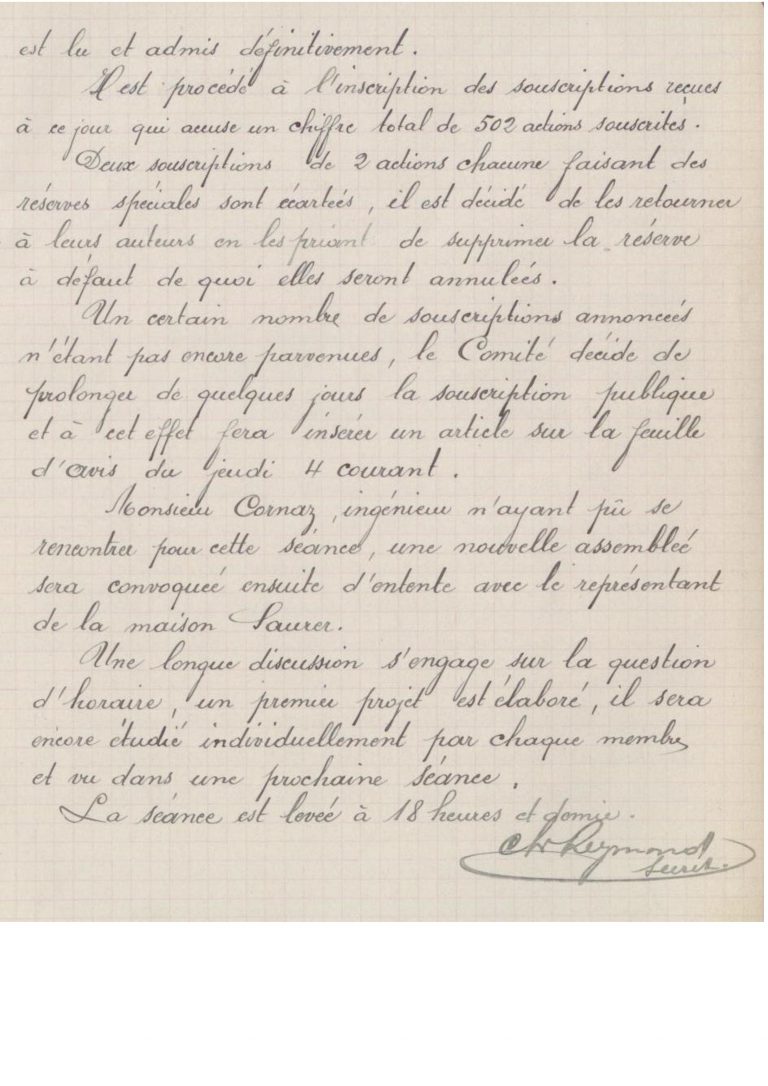 est lu et admis définitivement.
Il est procédé à l'inscription des souscriptions reçues
à ce jour qui accuse un chiffre total de 502 actions souscrites.
Deux souscriptions de 2 actions chacune faisant des
réserves spéciales sont écarteés, il est décidé de les retourner
à leurs auteurs en les priant de supprimer la réserve
à défaut de quoi elles seront annuleés.
Un certain nombre de souscriptions annonceés
n'étant pas encore parvenues, le Comité décide de
prolonger de quelques jours la souscription publique
et à cet effet fera insérer un article sur la feuille
d'avis du jeudi 4 courant.
Monsieur Cornaz, ingénieur n'ayant pû se
rencontrer pour cette séance, une nouvelle assembleé
sera convoqueé ensuite d'entente avec le représentant
de la maison Saurer.
Une longue discussion s'engage sur la question
d'horaire, un premier projet est élaboré, il sera
encore étudié individuellement par chaque membre
et vu dans une prochaine séance.
La séance est leveé à 18 heures et demie.
Reymond
secrét.